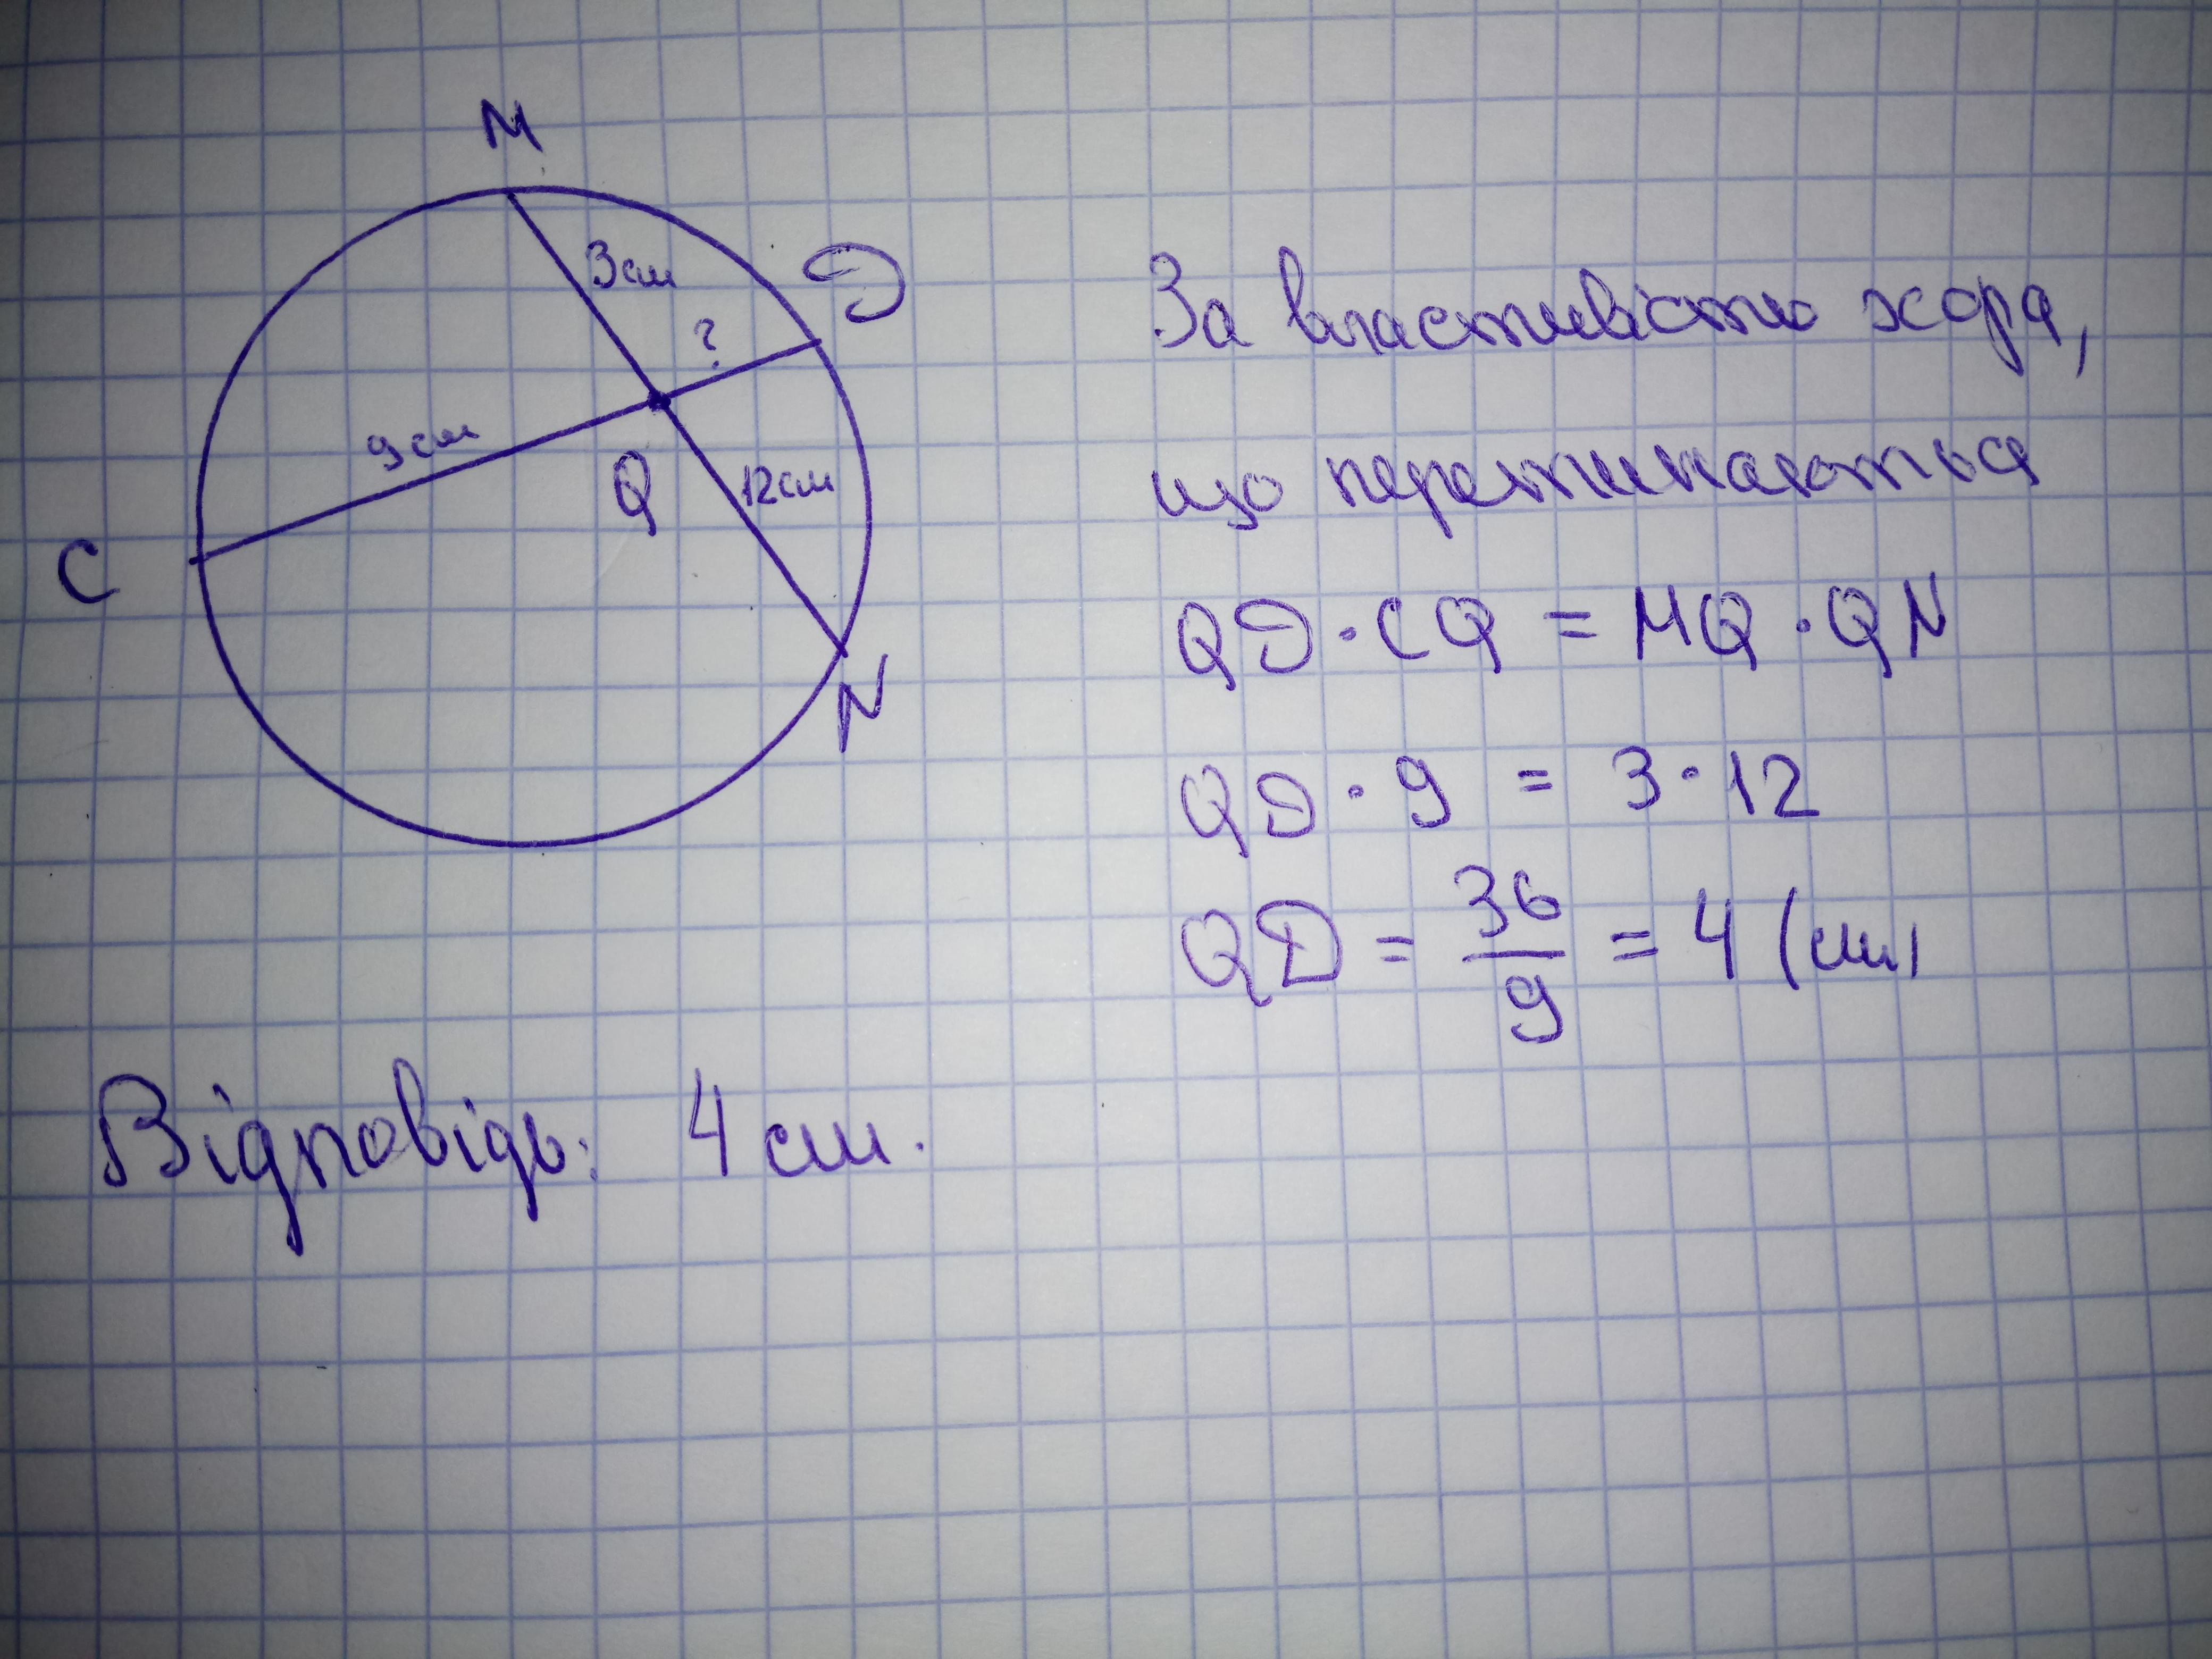 M
3см
D
?
9см
Q
12см
C
N
За властивістю хорд,
що перетинаються
QD · CQ = MQ · QN
QD · 9 = 3 · 12
QD = 36/9 = 4 (см)
Відповідь: 4 см.